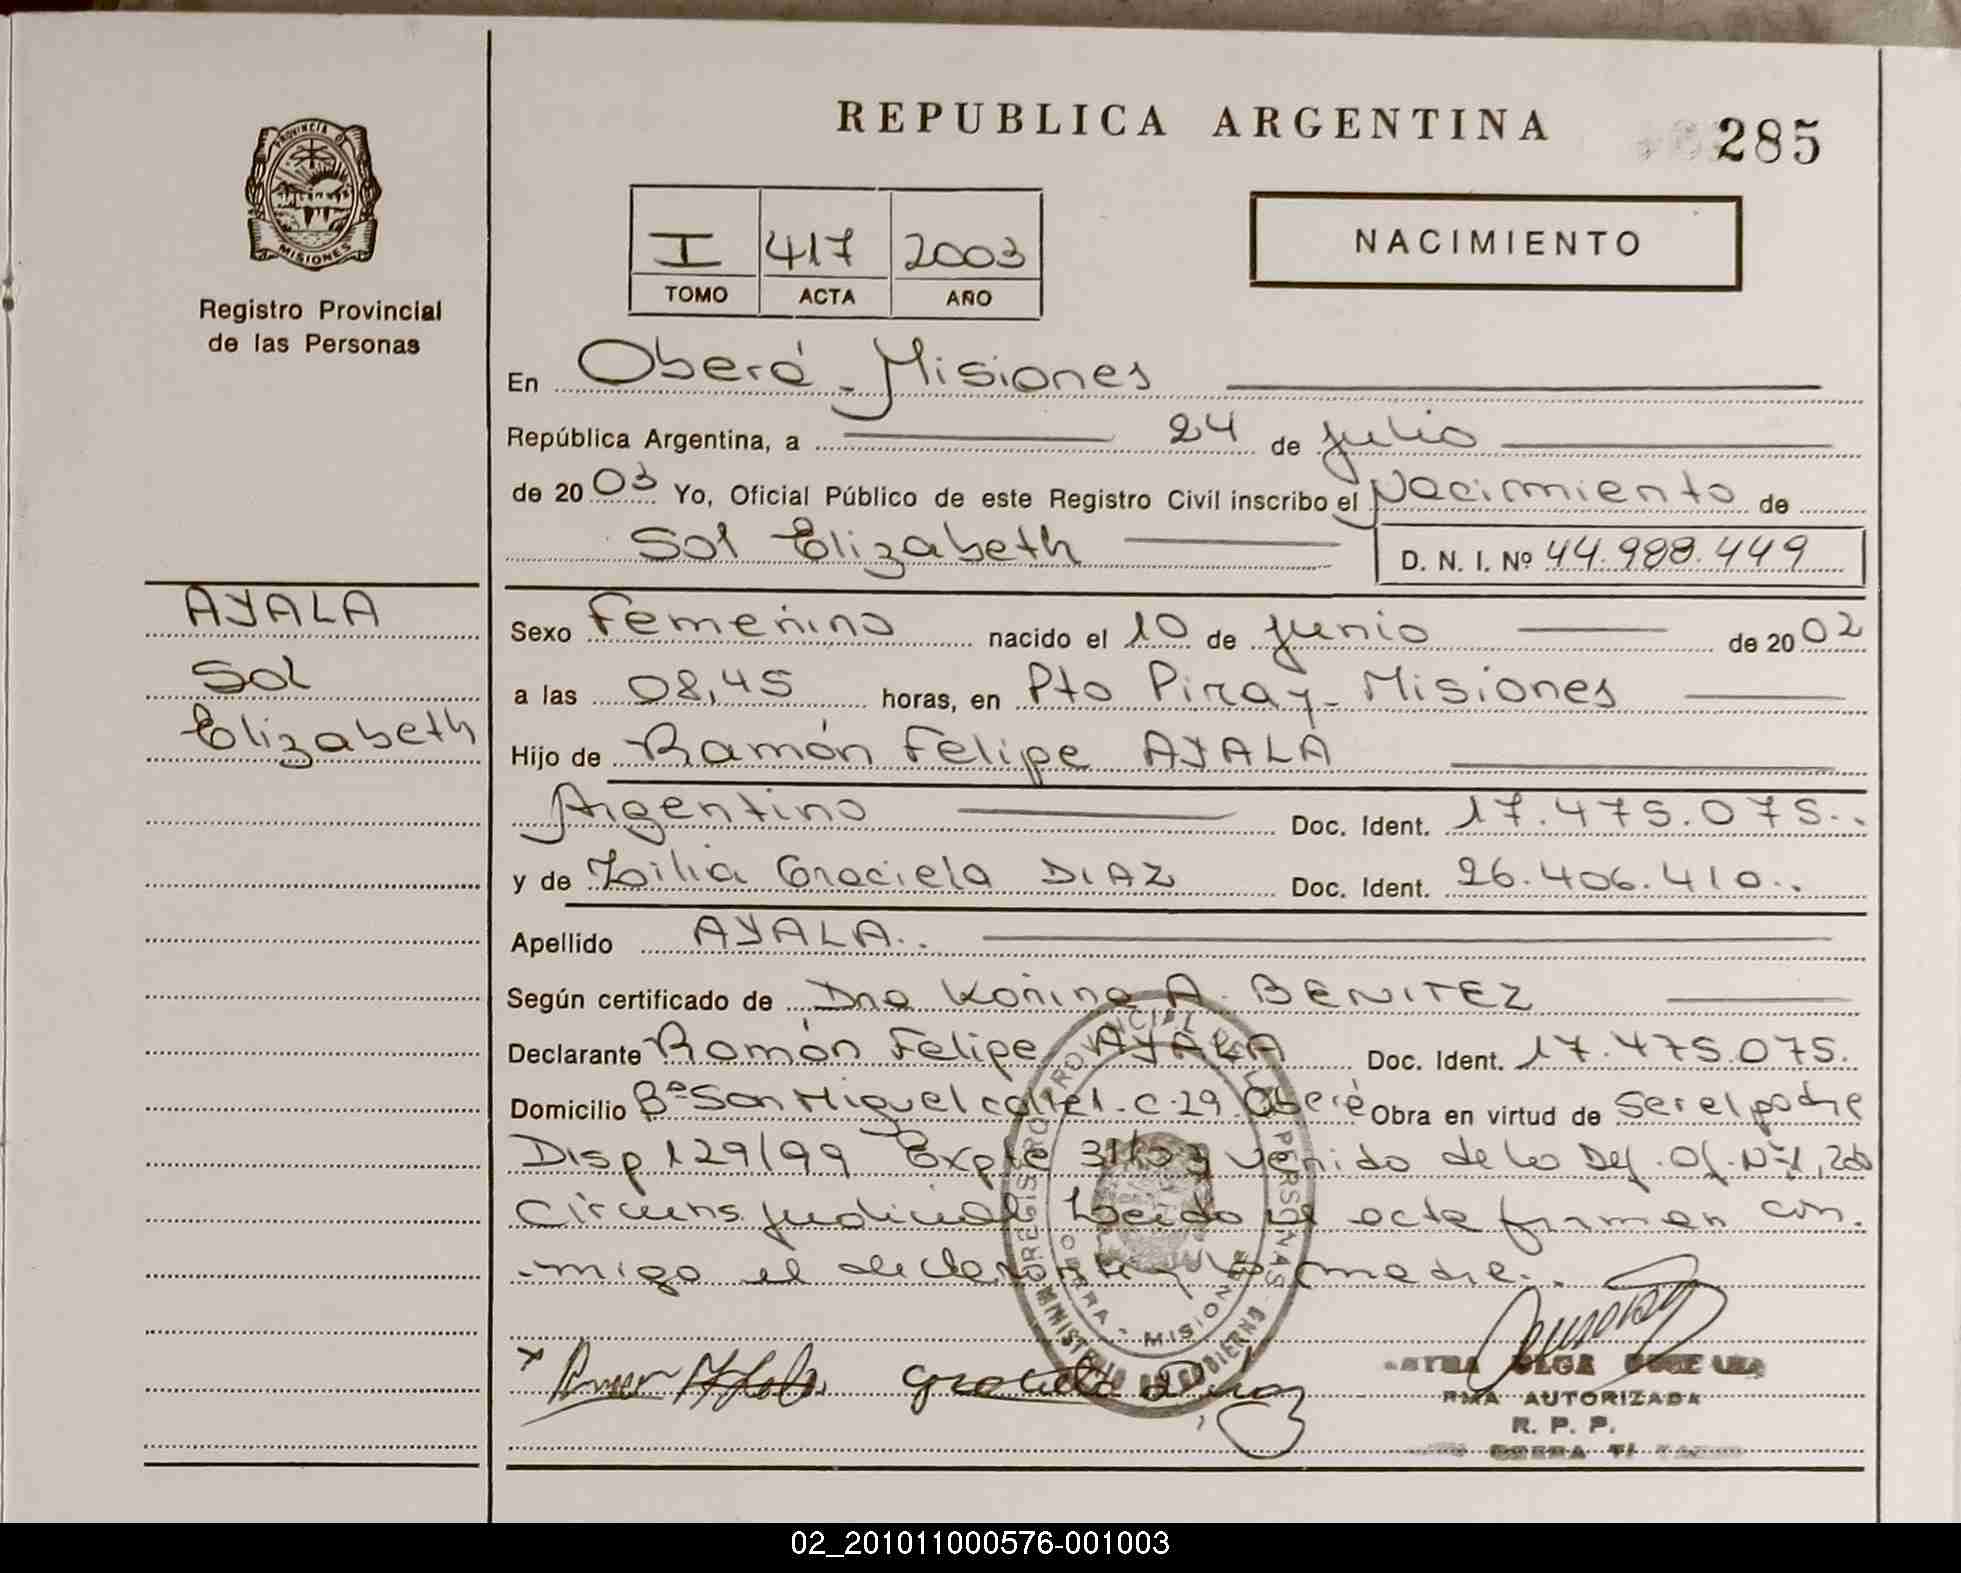 REPUBLICA ARGENTINA
285
PROVINCIA D
MISIONES
Registro Provincial
de las Personas
I 417 2003
TOMO ACTA AÑO
NACIMIENTO
En Oberá - Misiones
República Argentina, a 24 de Julio
de 2003 Yo, Oficial Público de este Registro Civil inscribo el Nacimiento de
Sol Elizabeth
D. N. I. Nº 44.988.449
AYALA
Sol
Elizabeth
Sexo Femenino nacido el 10 de junio de 2002
a las 08,45 horas, en Pto Piray - Misiones
Hijo de Ramón Felipe AYALA
Argentino Doc. Ident. 17.475.075..
y de Graciela DIAZ Doc. Ident. 26.406.410..
Apellido AYALA..
Según certificado de Dra A. BENITEZ
Declarante Ramón Felipe AYALA Doc. Ident. 17.475.075.
Domicilio Bº San Miguel calle 1 - C. 29. Oberá Obra en virtud de Ser el padre
Disp 129/99 Expte venido de la Def. Of. Nº 1, 2da
Circuns. Judicial Leida el acta firman con
-migo el declarante y la madre..
REGISTRO PROVINCIAL DE LAS PERSONAS
OBERA - MISIONES
MINISTERIO DE GOBIERNO
Graciela Diaz
OLGA
FIRMA AUTORIZADA
R. P. P.
02_201011000576-001003